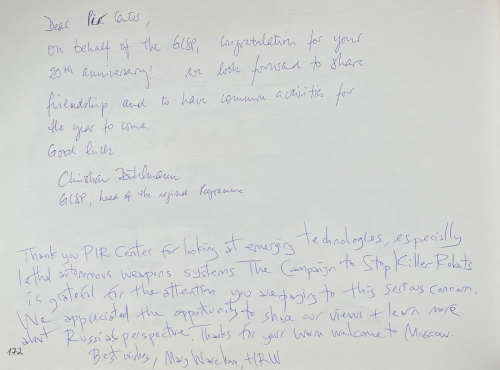 Dear PIR Center,
On behalf of the GCSP, congratulation for your
20th anniversary! We look forward to share
friendship and to have common activities for
the year to come
Good luck
Christian Bühlmann
GCSP, head of the regional Programme
Thank you PIR Center for looking at emerging technologies, especially
lethal autonomous weapons systems. The Campaign to Stop Killer Robots
is grateful for the attention you are paying to this serious concern.
We appreciated the opportunity to share our views + learn more
about Russia's perspective. Thanks for your warm welcome to Moscow.
Best wishes, Mary Wareham, HRW
172